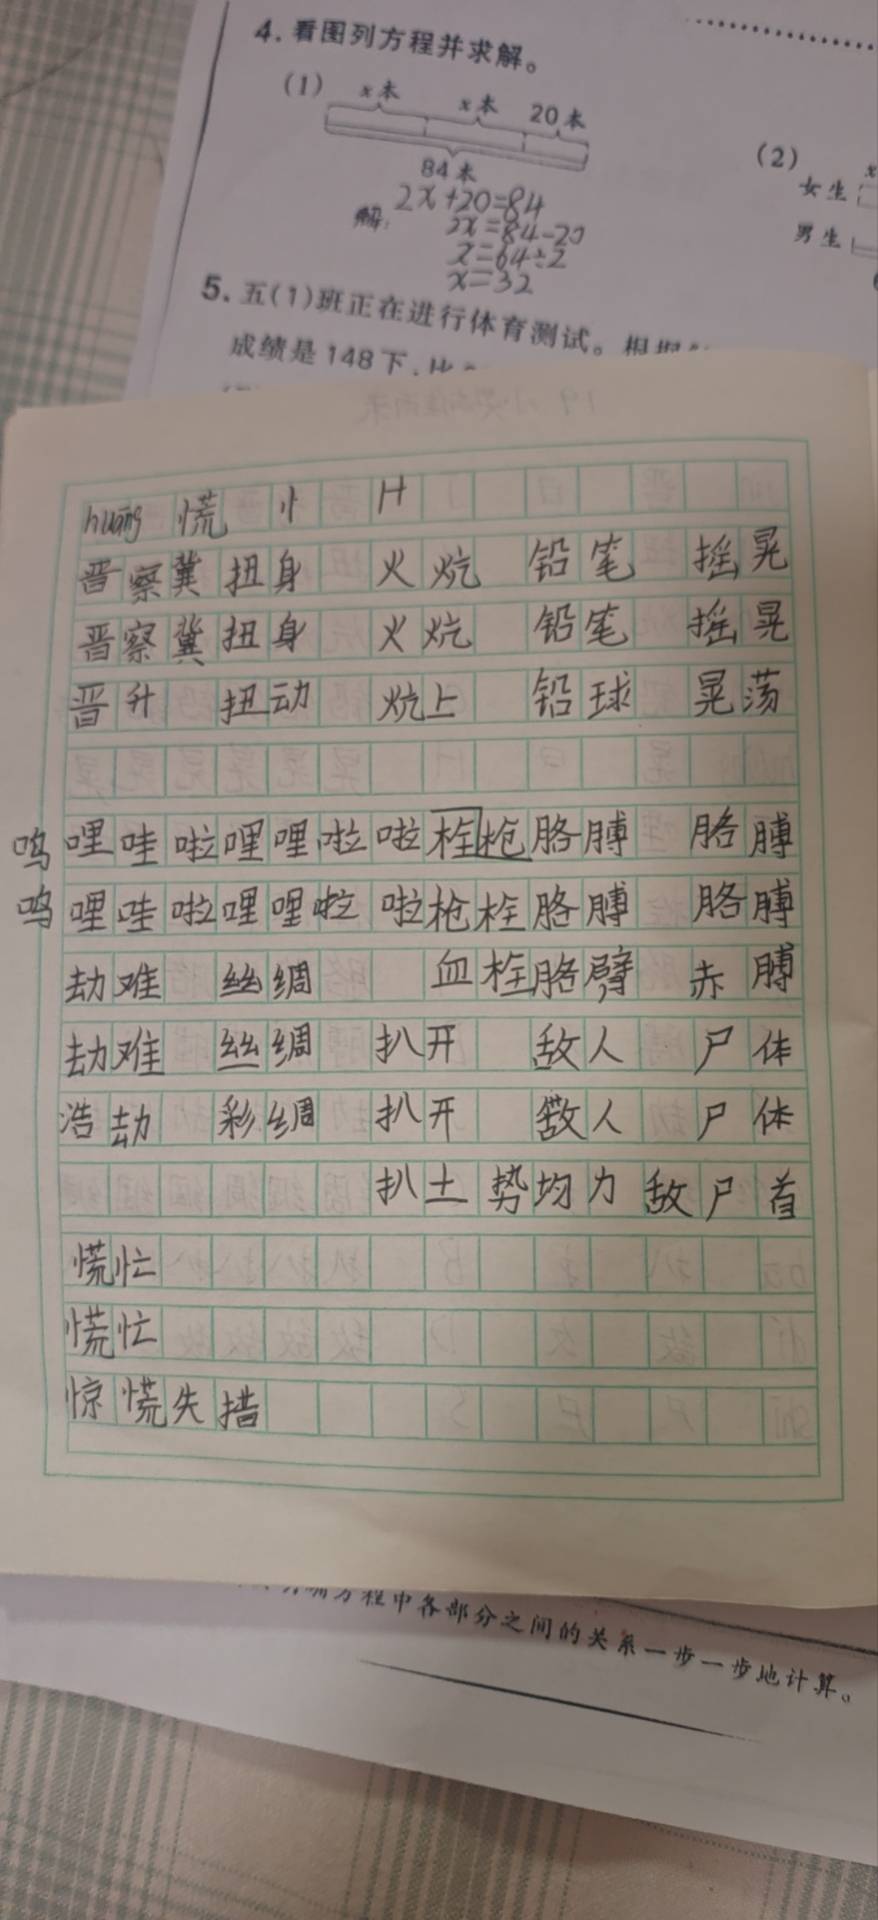 4. 看图列方程并求解。
(1) x本 x本 20本
84本
(2)
女生
x
男生
解: 2x+20=84
2x=84-20
x=64÷2
x=32
5. 五(1)班正在进行体育测试。根据
成绩是148下,比
huāng 慌 忄 H
晋察冀扭身 火炕 铅笔 摇晃
晋察冀扭身 火炕 铅笔 摇晃
晋升 扭动 炕上 铅球 晃荡
呜哩哇啦哩哩啦啦栓枪胳膊 胳膊
呜哩哇啦哩哩啦啦枪栓胳膊 胳膊
劫难 丝绸 血栓胳臂 赤膊
劫难 丝绸 扒开 敌人 尸体
浩劫 彩绸 扒开 敌人 尸体
扒土 势均力敌 尸首
慌忙
慌忙
惊慌失措
方程中各部分之间的关系一步一步地计算。